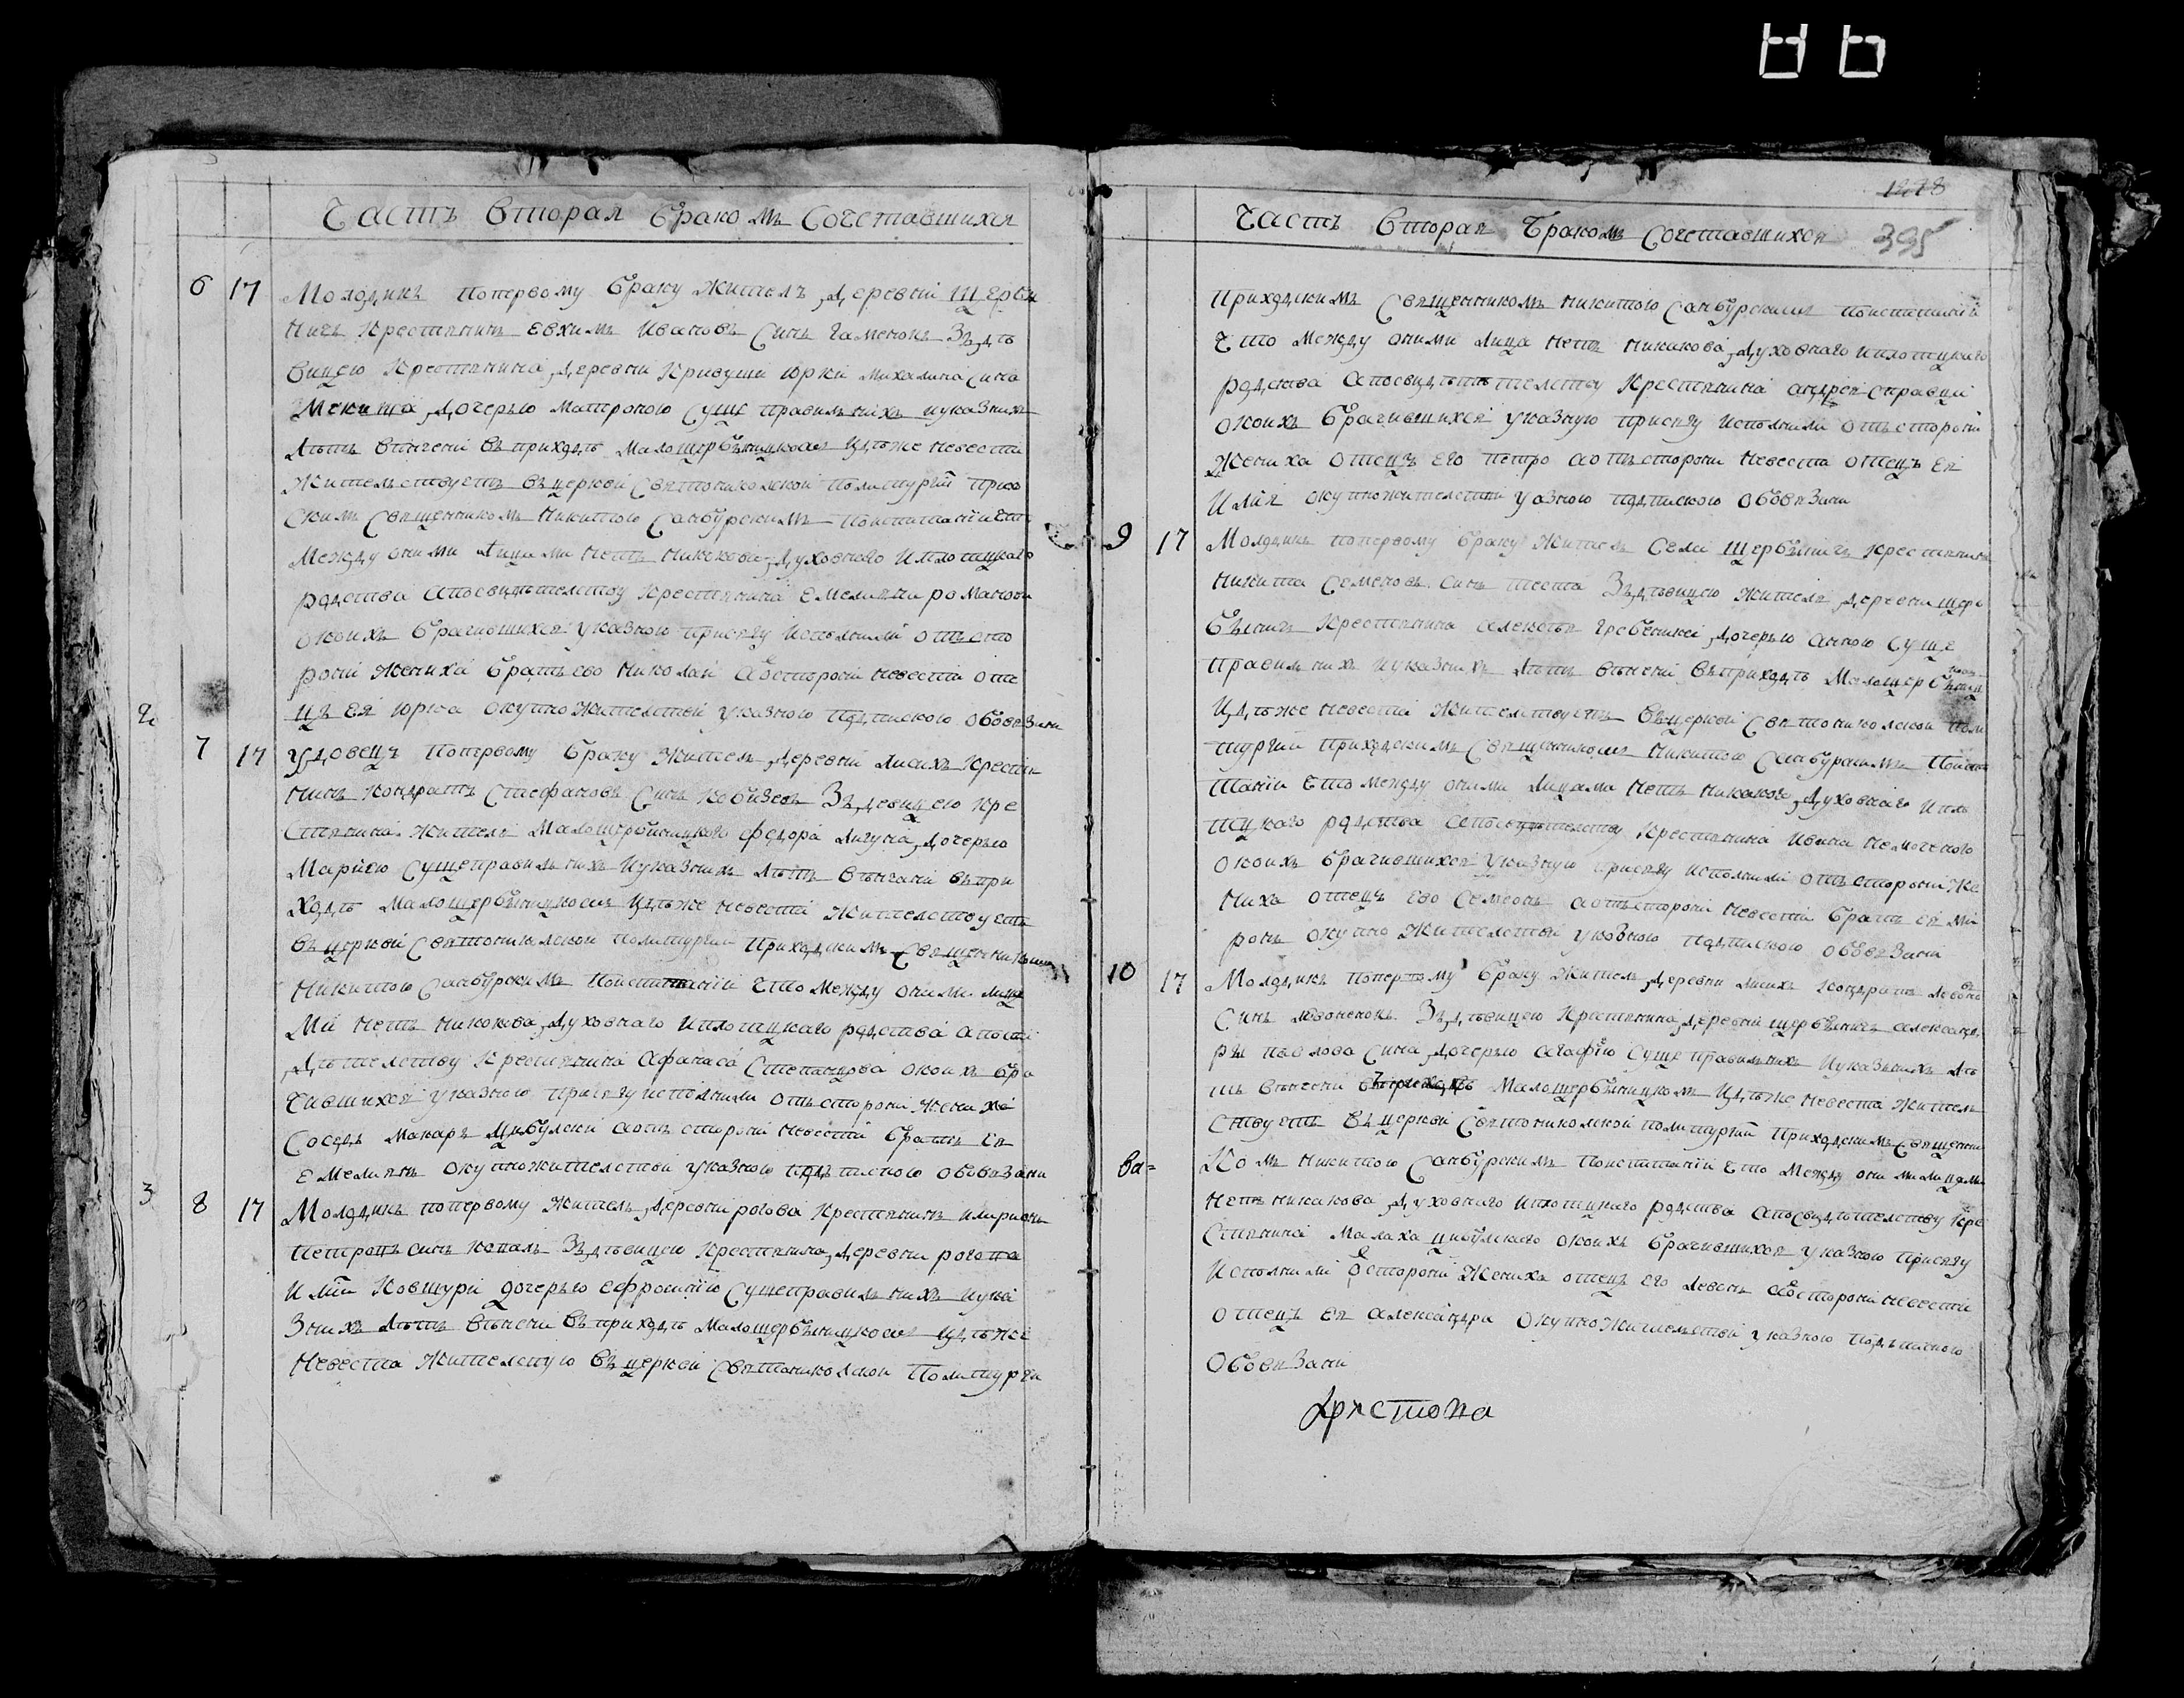 Частъ вторая бракомъ сочетавшихся
6 17 Молодикъ поперьвому браку житель деревни Щербѣ
ничъ крестянинъ Евхимъ Ивановъ синъ Гаменокъ зъ дѣ
вицею крестянина деревни Кривуши Юрки Михалина сина
дочерью Матроною суще правилнихъ иуказнихъ
лѣтъ вѣнчени въ приходѣ Малощербѣницкомъ идѣже невеста
жителствуетъ въ церкви святониколской политургіи прихо
скимъ священникомъ Никитою Самбурскимъ поиспитаніи что
между оними лицами нетъ никокова духовного иплотцкаго
родства апосвидѣтелству крестянина Емеляна Романови
окоихъ брачившихся указною присягу исполнили отъ сто
рони жениха братъ ево Николай аотстрони невести оте
цъ ея Юрка окупножителстви указною подпискою обовязани
2
7 17 Удовецъ поперьвому браку житель деревни Лисихъ крестя
нинъ Кондратъ Стефановъ синъ Кобизевъ зъ девицею кре
стянина жителя Малощербиницкого Федора Лигуна дочерью
Маріею суще правилнихъ иуказнихъ лѣтъ вѣнчани въ при
ходѣ Малощербѣницкомъ идѣже невеста жителствуетъ
въ церкви святониколской политургіи приходскимъ священникомъ
Никитою Самбурскимъ поиспитаніи что между оними лица
ми нетъ никокова духовнаго иплотцкаго родства апосви
дѣтелству крестянина Афанаса Степанцова окоихъ бра
чившихся указною присягу исполнили отъ сторони жениха
соседъ Макаръ Цибулски аотъ сторони невести братъ ея
Емелянъ окупножителстви указною подпискою обовязани
3
8 17 Молодикъ поперьвому житель деревни Рогова крестянинъ Иларионъ
Петровъ синъ Копаль зъ дѣвицею крестянина деревни Рогова
Иліи Ковшури дочерью Ефросиніею суще правилнихъ иука
знихъ лѣтъ вѣнчени въ приходѣ Малощербѣницкомъ идѣже
невеста жителствую въ церкви святониколской политурги
1278
Частъ вторая бракомъ сочетавшихся 395
приходскимъ священникомъ Никитою Самбурскимъ поиспитаніи
что между оними лица нетъ никакова духовнаго иплотцкаго
родства апосвидѣтелству крестянина Андрея Справци
окоихъ брачившихся указную присягу исполнили отъ сторони
жениха отецъ его Петро аотъ сторони невести отецъ ея
Илія окупножителстви указною подпискою обовязани
9 17 Молодикъ поперьвому браку житель села Щербѣничъ крестянинъ
Никита Семеновъ синъ зъ дѣвицею жителя деревни Щер
бѣничъ крестянина Алексѣя Гребеники дочерью Анною суще
правилнихъ иуказнихъ лѣтъ вѣнчени въ приходѣ Малощербѣницкомъ
идѣже невеста жителствуетъ въ церкви святониколской поли
тургіи приходскимъ священникомъ Никитою Самбурскимъ поиспи
таніи что между оними лицами нетъ никакого духовнаго ипло
тцкаго родства апосвидѣтелству крестянина Ивана
окоихъ брачившихся указную присягу исполнили отъ сторони же
ниха отецъ ево Семеонъ аотъ сторони невести братъ ея Ми
ронъ окупно жителстви указною подпискою обовязани
10 17 Молодикъ поперьвому браку житель деревни Лисихъ Кондратъ Левоновъ
синъ Левоненокъ зъ дѣвицею крестянина деревни Щербѣничъ Александ
ри Павлова сина дочерью Агафіею суще правилнихъ иуказнихъ лѣ
тъ вѣнчени въ приходѣ Малощербѣницкомъ идѣже невеста жител
ствуетъ въ церкви святониколской политургіи приходскимъ священни
комъ Никитою Самбурскимъ поиспитаніи что между оними лицами
нетъ никакова духовнаго иплотцкаго родства апосвидѣтелству кре
стянина Малаха Цибулского окоихъ брачившихся указною присягу
исполнили отсторони жениха отецъ его Левонъ аотсторони невести
отецъ ея Александра окупножителстви указною подпискою
обовязани